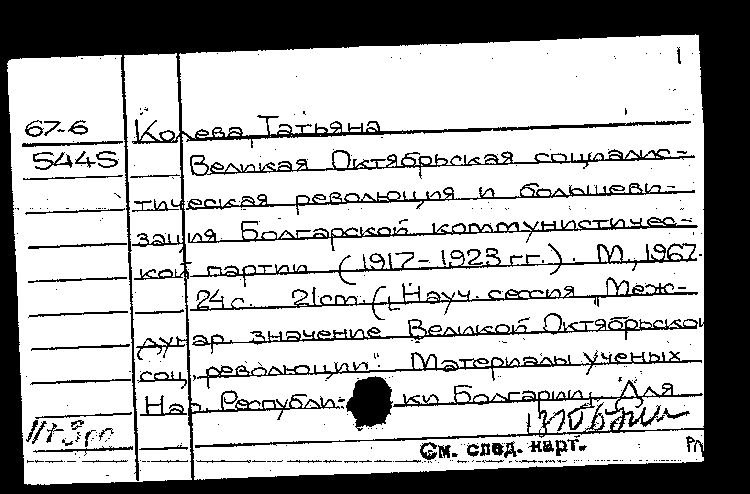 1
67-6 Колева, Татьяна
5445 Великая Октябрьская социалис-
тическая революция и большеви-
зация Болгарской коммунистичес-
кой партии (1917-1923 гг.). М., 1967.
24 с. 21 см. (Науч. сессия "Меж-
дунар. значение Великой Октябрьской
соц. революции". Материалы ученых
Нар. Республи- ки Болгарии). Для
См. след. карт.